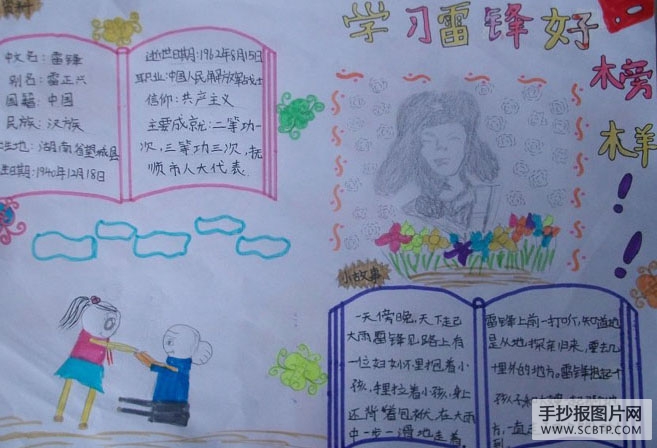 学习雷锋好
榜
样
!
!
资料
中文名:雷锋
别名:雷正兴
国籍:中国
民族:汉族
出生地:湖南省望城县
生日期:1940年12月18日
逝世日期:1962年8月15日
职业:中国人民解放军战士
信仰:共产主义
主要成就:二等功一
次,三等功三次,抚
顺市人大代表
小故事
一天傍晚,天下起
大雨雷锋见路上有
一位妇女怀里抱着小
孩,手里拉着小孩,身上
还背着包袱,在大雨
中一步一滑地走着。
雷锋上前一打听,知道她
是从地探亲归来,要去几
里外的地方。雷锋
孩子
手抄报图片网
WWW.SCBTP.COM